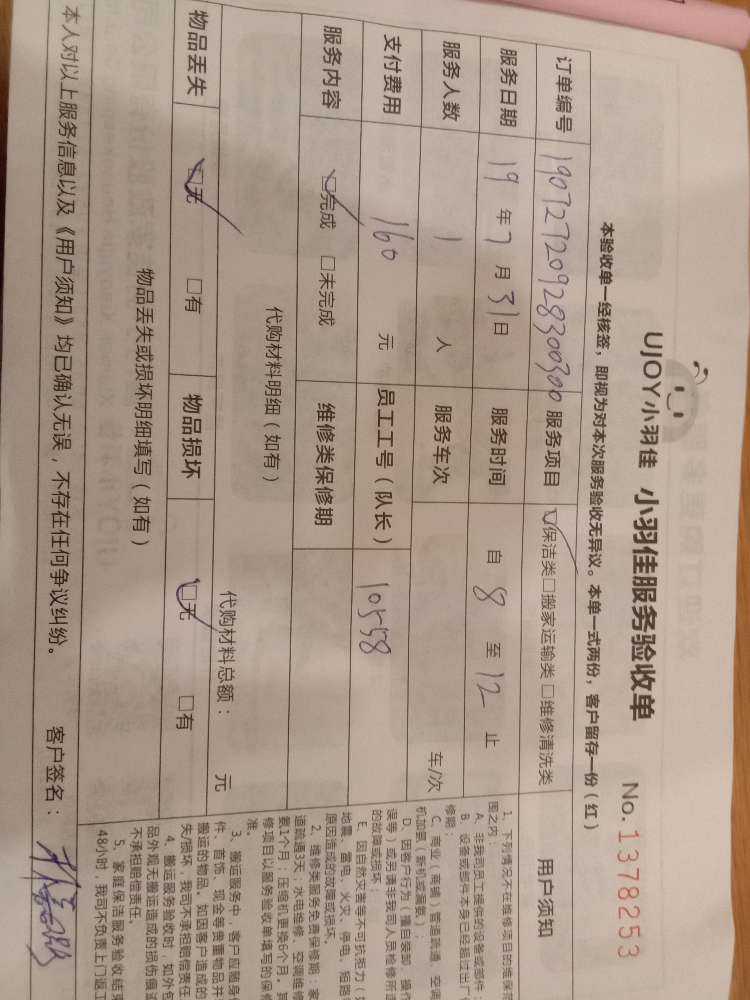 UJOY小羽佳 小羽佳服务验收单 No. 1378253
本验收单一经核签，即视为对本次服务验收无异议。本单一式两份，客户留存一份（红）
订单编号 190727209283003​00 服务项目 ☑保洁类□搬家运输类 □维修清洗类
服务日期 19 年 7 月 31 日 服务时间 自 8 至 12 止
服务人数 1 人 服务车次 车/次
支付费用 160 元 员工工号（队长） 10558
服务内容 ☑完成 □未完成 维修类保修期
代购材料明细（如有）
代购材料总额： 元
物品丢失 ☑无 □有 物品损坏 ☑无 □有
物品丢失或损坏明细填写（如有）
本人对以上服务信息以及《用户须知》均已确认无误，不存在任何争议纠纷。 客户签名：
用户须知
1、下列情况不在维修项目的维保范
围之内：
A、非我司员工提供的设备或部件；
B、设备或部件本身已经超过出厂
修期；
C、商业（商铺）管道疏通，空调
机加氨（新机或漏氨）；
D、因客户行为（擅自装卸、操作
误等）或另请非我司人员检修所造
的故障或损坏
E、因自然灾害等不可抗拒力（如
地震、雷电、火灾、停电、短路
原因造成的故障或损坏。
2、维修类服务免费保修期：家
道疏通3天，水电维修、空调维修
氨1个月；压缩机更换6个月。其
修项目以服务验收单填写的保修
准。
3、搬运服务中，客户应随身
件、首饰、现金等贵重物品并
搬运的物品，如因客户造成的
失/损坏，我司不承担赔偿责任
4、搬运服务验收时，如外包
品外观无搬运造成的损伤痕迹
不承担赔偿责任。
5、家庭保洁服务验收结束
48小时，我司不负责上门返工